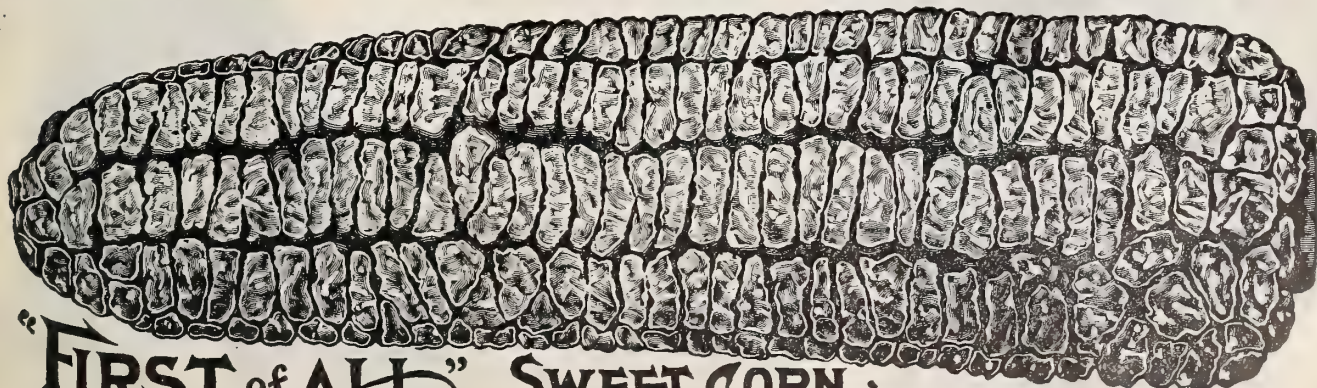 "FIRST of ALL" SWEET CORN.